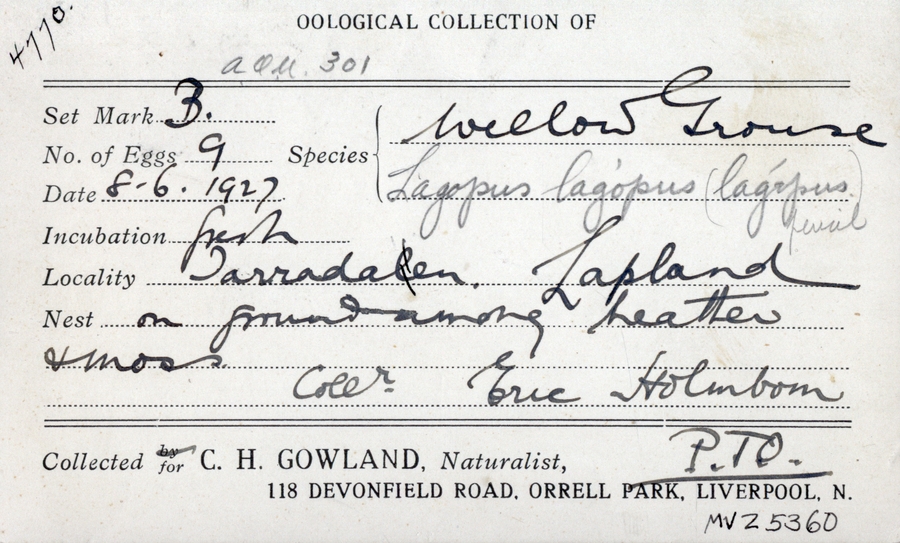 4770.
OOLOGICAL COLLECTION OF
A.O.U. 301
Set Mark 3.
No. of Eggs 9 Species Willow Grouse
Date 8-6. 1927 Lagopus lagopus (lagopus)
Incubation fresh
Locality Tarradalen. Lapland
Nest on ground among heather
& moss.
Collr. Eric Holmbom
Collected by for C. H. GOWLAND, Naturalist, P.T.O.
118 DEVONFIELD ROAD, ORRELL PARK, LIVERPOOL, N.
MVZ 5360